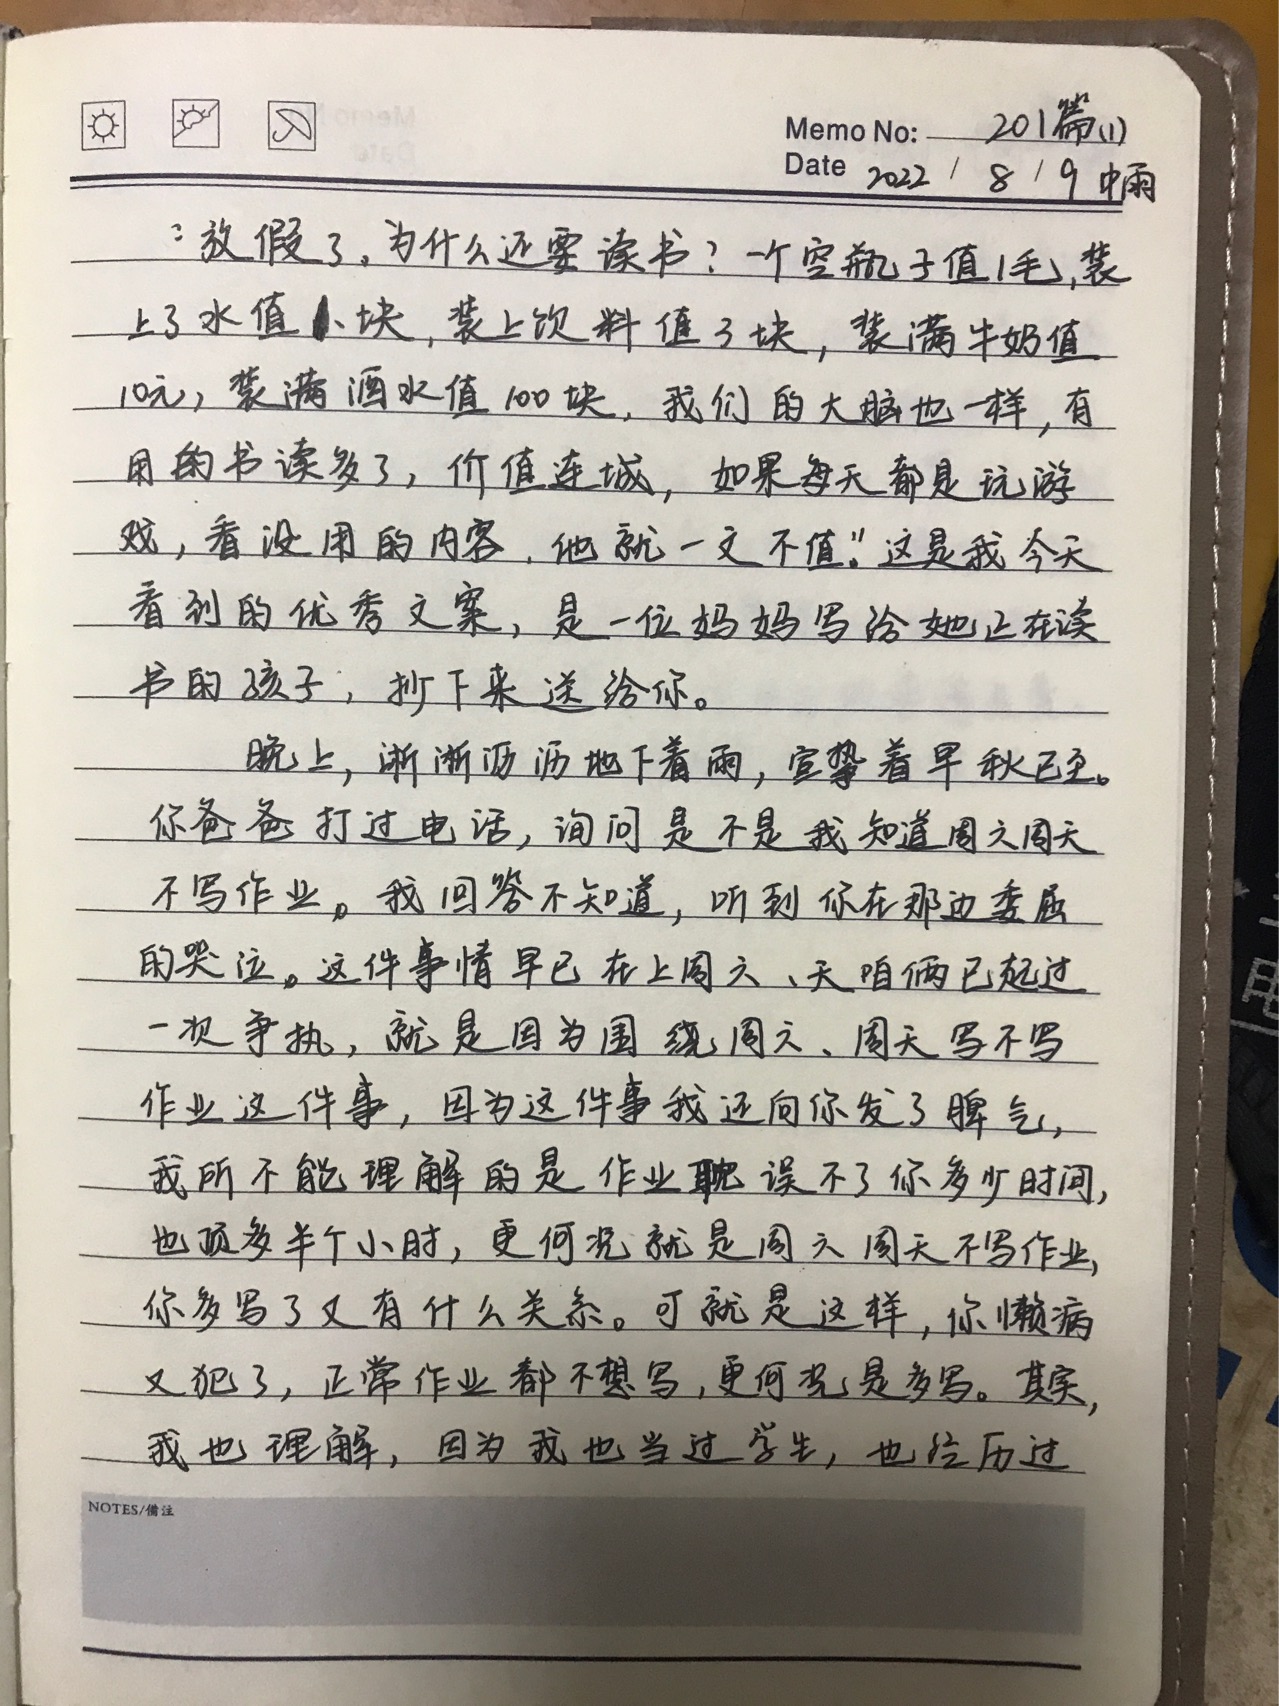 Memo No: 201篇(1)
Date 2022 / 8 / 9 中雨
:放假了。为什么还要读书？一个空瓶子值1毛,装
上了水值1块,装上饮料值3块,装满牛奶值
10元,装满酒水值100块,我们的大脑也一样,有
用的书读多了,价值连城,如果每天都是玩游
戏,看没用的内容,他就一文不值!"这是我今天
看到的优秀文案,是一位妈妈写给她正在读
书的孩子,抄下来送给你。
晚上,淅淅沥沥地下着雨,宣挚着早秋已至。
你爸爸打过电话,询问是不是我知道周六周天
不写作业。我回答不知道,听到你在那边委屈
的哭泣。这件事情早已在上周六、天咱俩已起过
一次争执,就是因为围绕周六、周天写不写
作业这件事,因为这件事我还向你发了脾气,
我所不能理解的是作业耽误不了你多少时间,
也顶多半个小时,更何况就是周六周天不写作业,
你多写了又有什么关系。可就是这样,你懒病
又犯了,正常作业都不想写,更何况是多写。其实,
我也理解,因为我也当过学生,也经历过
NOTES/備注